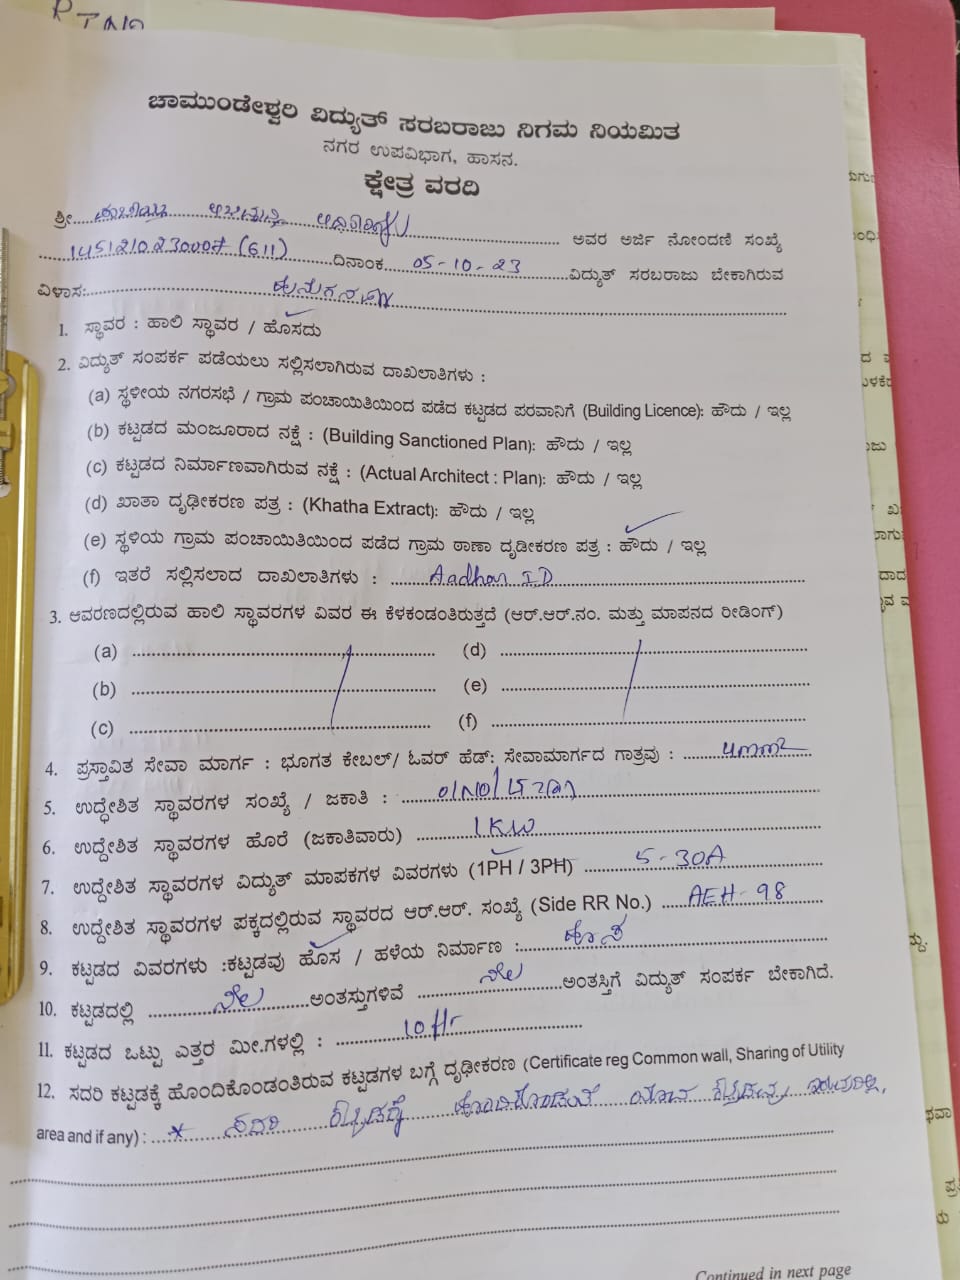 ಚಾಮುಂಡೇಶ್ವರಿ ವಿದ್ಯುತ್ ಸರಬರಾಜು ನಿಗಮ ನಿಯಮಿತ
ನಗರ ಉಪವಿಭಾಗ, ಹಾಸನ.
ಕ್ಷೇತ್ರ ವರದಿ
ಶ್ರೀ ಅವರ ಅರ್ಜಿ ನೋಂದಣಿ ಸಂಖ್ಯೆ
(611) ದಿನಾಂಕ 05-10-23 ವಿದ್ಯುತ್ ಸರಬರಾಜು ಬೇಕಾಗಿರುವ
ವಿಳಾಸ:
1. ಸ್ಥಾವರ : ಹಾಲಿ ಸ್ಥಾವರ / ಹೊಸದು
2. ವಿದ್ಯುತ್ ಸಂಪರ್ಕ ಪಡೆಯಲು ಸಲ್ಲಿಸಲಾಗಿರುವ ದಾಖಲಾತಿಗಳು :
(a) ಸ್ಥಳೀಯ ನಗರಸಭೆ / ಗ್ರಾಮ ಪಂಚಾಯಿತಿಯಿಂದ ಪಡೆದ ಕಟ್ಟಡದ ಪರವಾನಿಗೆ (Building Licence): ಹೌದು / ಇಲ್ಲ
(b) ಕಟ್ಟಡದ ಮಂಜೂರಾದ ನಕ್ಷೆ : (Building Sanctioned Plan): ಹೌದು / ಇಲ್ಲ
(c) ಕಟ್ಟಡದ ನಿರ್ಮಾಣವಾಗಿರುವ ನಕ್ಷೆ : (Actual Architect : Plan): ಹೌದು / ಇಲ್ಲ
(d) ಖಾತಾ ದೃಢೀಕರಣ ಪತ್ರ : (Khatha Extract): ಹೌದು / ಇಲ್ಲ
(e) ಸ್ಥಳಿಯ ಗ್ರಾಮ ಪಂಚಾಯಿತಿಯಿಂದ ಪಡೆದ ಗ್ರಾಮ ಠಾಣಾ ದೃಡೀಕರಣ ಪತ್ರ : ಹೌದು / ಇಲ್ಲ
(f) ಇತರೆ ಸಲ್ಲಿಸಲಾದ ದಾಖಲಾತಿಗಳು : Aadhar ID
3. ಆವರಣದಲ್ಲಿರುವ ಹಾಲಿ ಸ್ಥಾವರಗಳ ವಿವರ ಈ ಕೆಳಕಂಡಂತಿರುತ್ತದೆ (ಆರ್.ಆರ್.ನಂ. ಮತ್ತು ಮಾಪನದ ರೀಡಿಂಗ್)
(a) (d)
(b) (e)
(c) (f)
4. ಪ್ರಸ್ತಾವಿತ ಸೇವಾ ಮಾರ್ಗ : ಭೂಗತ ಕೇಬಲ್/ ಓವರ್ ಹೆಡ್: ಸೇವಾಮಾರ್ಗದ ಗಾತ್ರವು : 4mm2
5. ಉದ್ಧೇಶಿತ ಸ್ಥಾವರಗಳ ಸಂಖ್ಯೆ / ಜಕಾತಿ :
6. ಉದ್ದೇಶಿತ ಸ್ಥಾವರಗಳ ಹೊರೆ (ಜಕಾತಿವಾರು) 1KW
7. ಉದ್ದೇಶಿತ ಸ್ಥಾವರಗಳ ವಿದ್ಯುತ್ ಮಾಪಕಗಳ ವಿವರಗಳು (1PH / 3PH) 5-30A
8. ಉದ್ದೇಶಿತ ಸ್ಥಾವರಗಳ ಪಕ್ಕದಲ್ಲಿರುವ ಸ್ಥಾವರದ ಆರ್.ಆರ್. ಸಂಖ್ಯೆ (Side RR No.) AEH-98
9. ಕಟ್ಟಡದ ವಿವರಗಳು :ಕಟ್ಟಡವು ಹೊಸ / ಹಳೆಯ ನಿರ್ಮಾಣ : ಹೊಸ
10. ಕಟ್ಟಡದಲ್ಲಿ ನೆಲ ಅಂತಸ್ತುಗಳಿವೆ ನೆಲ ಅಂತಸ್ತಿಗೆ ವಿದ್ಯುತ್ ಸಂಪರ್ಕ ಬೇಕಾಗಿದೆ.
11. ಕಟ್ಟಡದ ಒಟ್ಟು ಎತ್ತರ ಮೀ.ಗಳಲ್ಲಿ :
12. ಸದರಿ ಕಟ್ಟಡಕ್ಕೆ ಹೊಂದಿಕೊಂಡಂತಿರುವ ಕಟ್ಟಡಗಳ ಬಗ್ಗೆ ದೃಢೀಕರಣ (Certificate reg Common wall, Sharing of Utility
area and if any) : * ಸದರಿ ಕಟ್ಟಡಕ್ಕೆ ಹೊಂದಿಕೊಂಡಂತೆ ಯಾವ
Continued in next page